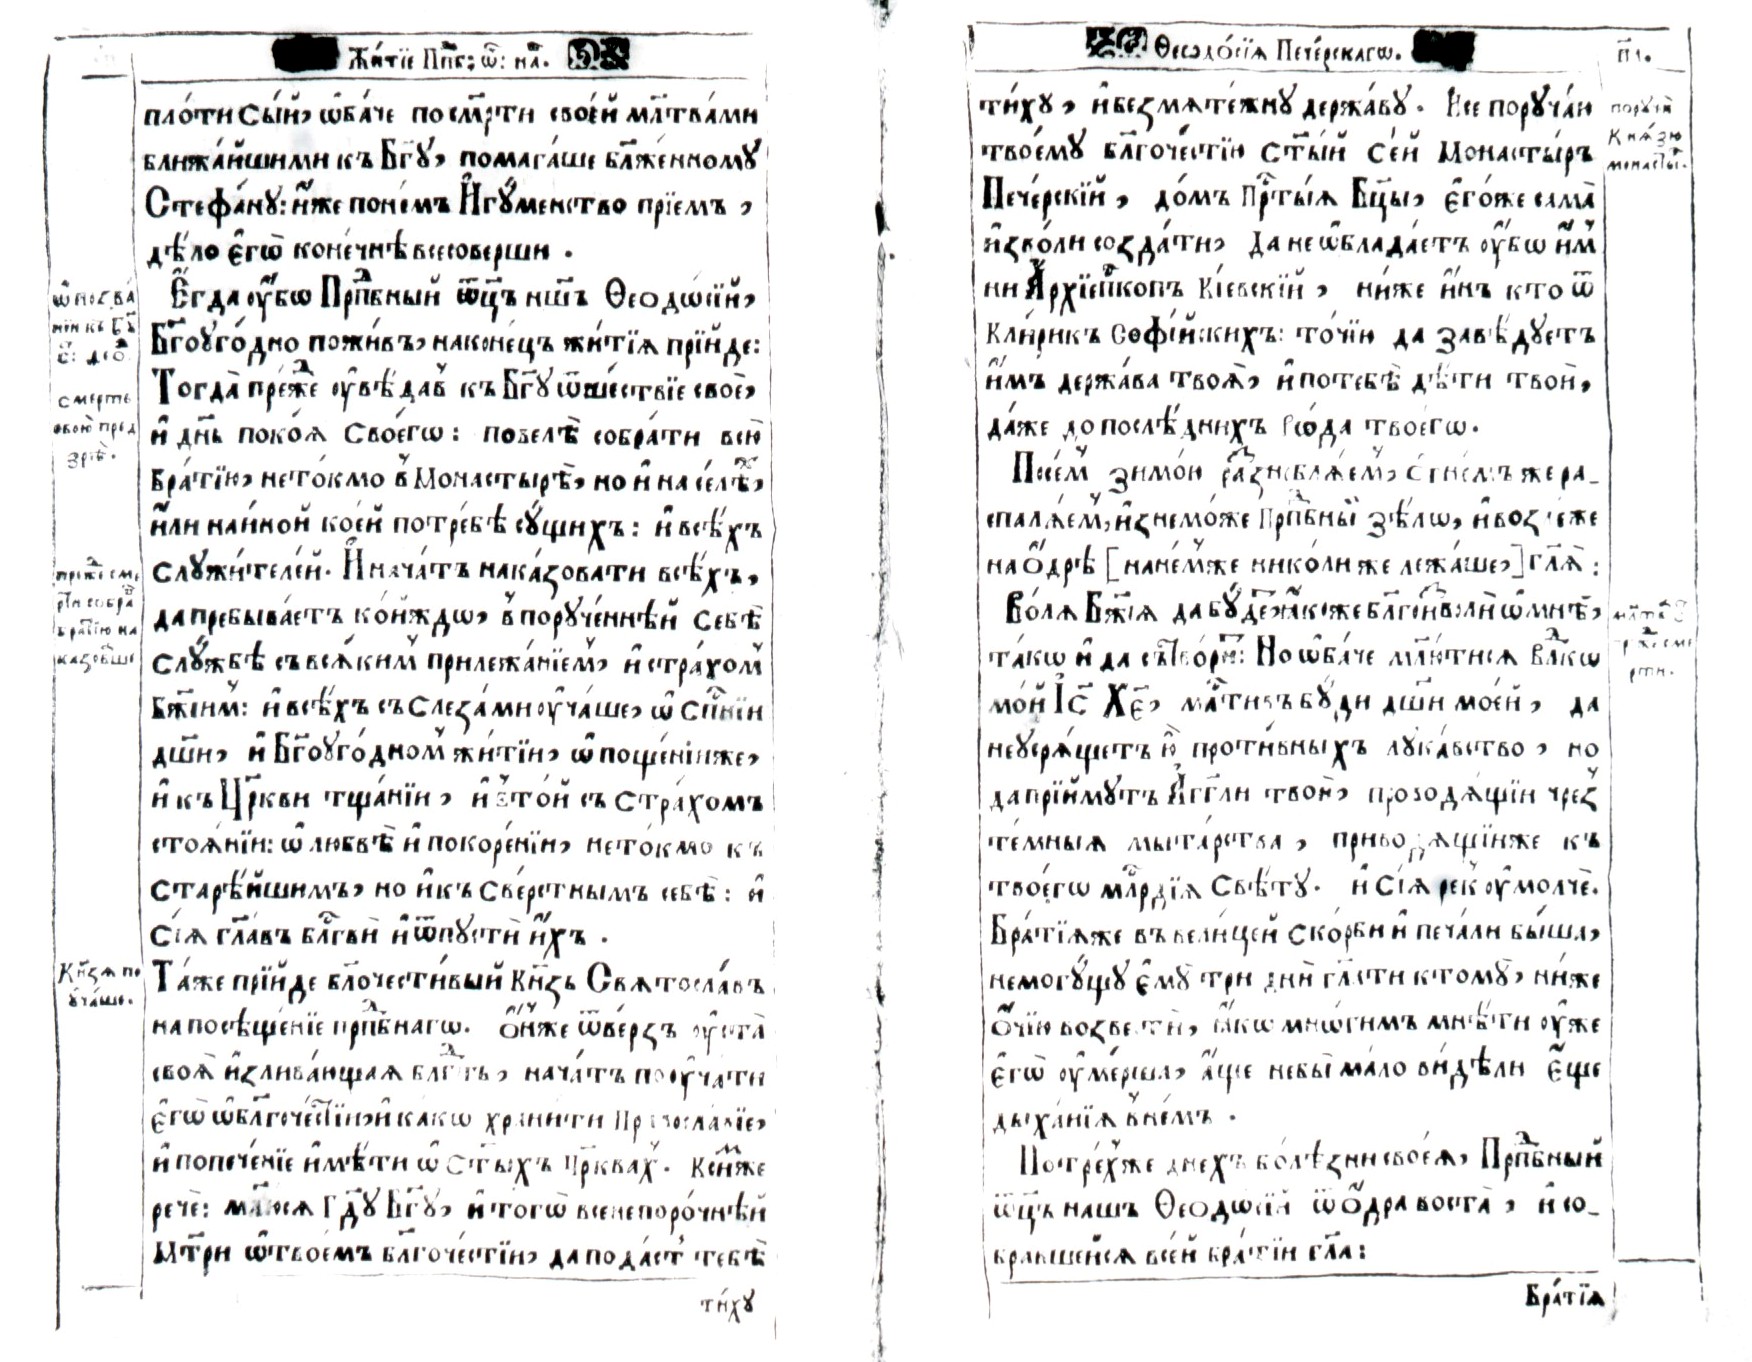 Жи́тїе Прⷣпб: ѿц: на́.
пло́ти Сы́й, ѡба́че по сме́рти свое́й мл҃тва́ми
ближа́йшими къ Бг҃ꙋ, помага́ше бл҃же́нномꙋ
Стефа́нꙋ: и́же по не́мъ И҆гꙋ́менство прїе́мъ,
дѣ́ло є҆гѡ̀ коне́чнѣ все совершѝ.
Є҆гда̀ ᲂу҆́бѡ Прпⷣбный ѿц҃ъ нш҃ъ Ѳеодо́сїй,
Бг҃оуго́дно пожи́въ, на коне́цъ житїѧ̀ прїи́де:
Тогда̀ пре́жⷣе ᲂу҆вѣ́давъ къ Бг҃ꙋ ѿше́ствїе своѐ,
и҆ дн҃ь поко́ѧ Своегѡ̀: повелѣ̀ собра́ти всю̀
Бра́тїю, не то́кмо в̾ Монастырѣ̀, но и҆ на се́лѣхъ,
и҆лѝ на и́ной кое́й потре́бѣ сꙋ́щихъ: и҆ всѣ́хъ
слꙋжи́телей. И҆ нача́тъ наказовати всѣ́хъ,
да пребыва́етъ ко́йждѡ, в̾ порꙋче́ннѣй Себѣ̀
слꙋ́жбѣ съ всѧ́кимъ прилежа́нїемъ, и҆ стра́хомъ
Бж҃їимъ: и҆ всѣ́хъ съ Слеза́ми ᲂу҆ча́ше, ѡ҆ Сп҃се́нїи
дш҃и, и҆ Бг҃оуго́дномъ житїи, ѡ҆ поще́нїи же,
и҆ къ Цр҃кви тща́нїи, и҆ в̾ то́й съ Стра́хомъ
стоѧ́нїи: ѡ҆ любвѣ̀ и҆ покоре́нїи, не то́кмо къ
Старѣ́йшимъ, но и҆ къ Све́рстнымъ себѣ̀: и҆
Сїѧ̀ гл҃авъ бл҃гвѝ и҆ ѿпꙋстѝ и҆́хъ.
Та́же прїи́де бл҃очести́вый Кн҃зь Свѧтосла́въ
на посѣще́нїе прпⷣбнагѡ. О҆́нже ѿве́рзъ ᲂу҆ста̀
своѧ̀ и҆злива́ющаѧ бл҃года́ть, нача́тъ поꙋча́ти
є҆гѡ̀ ѡ҆ бл҃гоче́стїи, и҆ ка́кѡ храни́ти Правосла́вїе,
и҆ попече́нїе и҆мѣ́ти ѡ҆ С҃тыхъ Цр҃квахъ. К семꙋ́же
речѐ: молю́сѧ Гд҃ꙋ Бг҃ꙋ, и҆ тогѡ̀ все непоро́чнѣй
Мт҃ри ѡ҆ твое́мъ бл҃гоче́стїи, да пода́стъ тебѣ̀
ти́хꙋ
ѡ҆ позва́
нїи къ Бг҃ꙋ
сме́рть
свою̀ пред
зрѣ̀.
пре́жⷣе сме́
рти собра
бра́тїю на
казова́ше
Кн҃зѧ по
ꙋча́ше.
Ѳеодо́сїѧ Пече́рскагѡ.
п҃і.
ти́хꙋ, и҆ безмѧте́жнꙋ держа́вꙋ. И҆ се порꙋча́ю
твоемꙋ̀ бл҃гоче́стїю С҃ты́й Се́й Монасты́ръ
Пече́рскїй, до́мъ Пр҃ты́ѧ Бц҃ы, є҆го́же сама̀
и҆зво́ли созда́ти, да не ѡ҆блада́етъ ᲂу҆́бѡ и҆́мъ
ни А҆рхїепⷭ҇копъ Кі́евскїй, ни́же и҆́нъ кто̀ ѿ
Кли́рикъ Софі́йскихъ: то́чїю да завѣ́дꙋетъ
и҆́мъ держа́ва твоѧ̀, и҆ по тебѣ̀ дѣ́ти твоѝ,
да́же до послѣ́днихъ Ро́да твоегѡ̀.
По се́мъ зимо́ю разноблѧ́емъ, Ѻгне́мъ же ра_
спалѧ́емъ, и҆знемо́же Прпⷣбный зѣ́лѡ, и҆ возле́же
на Ѻ҆дрѣ̀ [на не́мже николи́же лежа́ше,] гл҃ѧ:
Во́лѧ Бж҃їѧ да бꙋ́детъ, ꙗ҆́коже бл҃гоизво́ли ѡ҆ мнѣ̀,
та́кѡ и҆ да сътвори́тъ: Но ѡ҆ба́че мл҃ю́тисѧ Влⷣкѡ
мо́й Іс҃ Хе҃, млⷭ҇тивъ бꙋ́ди дш҃и мое́й, да
не ᲂусрѧ́щетъ ю҆̀ проти́вныхъ лꙋка́вство, но
да прїи́мꙋтъ А҆́гг҃ли твоѝ, проводѧ́щїи чрез̾
те́мныѧ мыта́рства, приводѧ́щїиже къ
твоегѡ̀ млⷭ҇рдїѧ Свѣ́тꙋ. и҆ Сїѧ̀ рек̾ ᲂу҆молчѐ.
Бра́тїѧже въ вели́цей ско́рби и҆ печа́ли бы́ша,
не могꙋ́щꙋ є҆мꙋ̀ три дни̑ гл҃ати к томꙋ̀, ни́же
ѻ҆́чїю возвестѝ, ꙗ҆́кѡ мнѡ́гимъ мнѣ́ти ᲂу҆жѐ
є҆гѡ̀ ᲂу҆ме́рша, а҆́ще не бы̀ ма́ло ви́дѣли є҆щѐ
дыха́нїѧ в̾ не́мъ.
По тре́хже дне́хъ болѣ́зни своеѧ̀, Прпⷣбный
ѿц҃ъ нашъ Ѳеодо́сїй ѿ ѻ҆дра̀ воста̀, и҆ со_
бра́вшейсѧ все́й бра́тїи гл҃а:
Бра́тїѧ
порꙋчѝ
Кнѧ́зю
монасты́.
пре́жⷣе сме
рти.